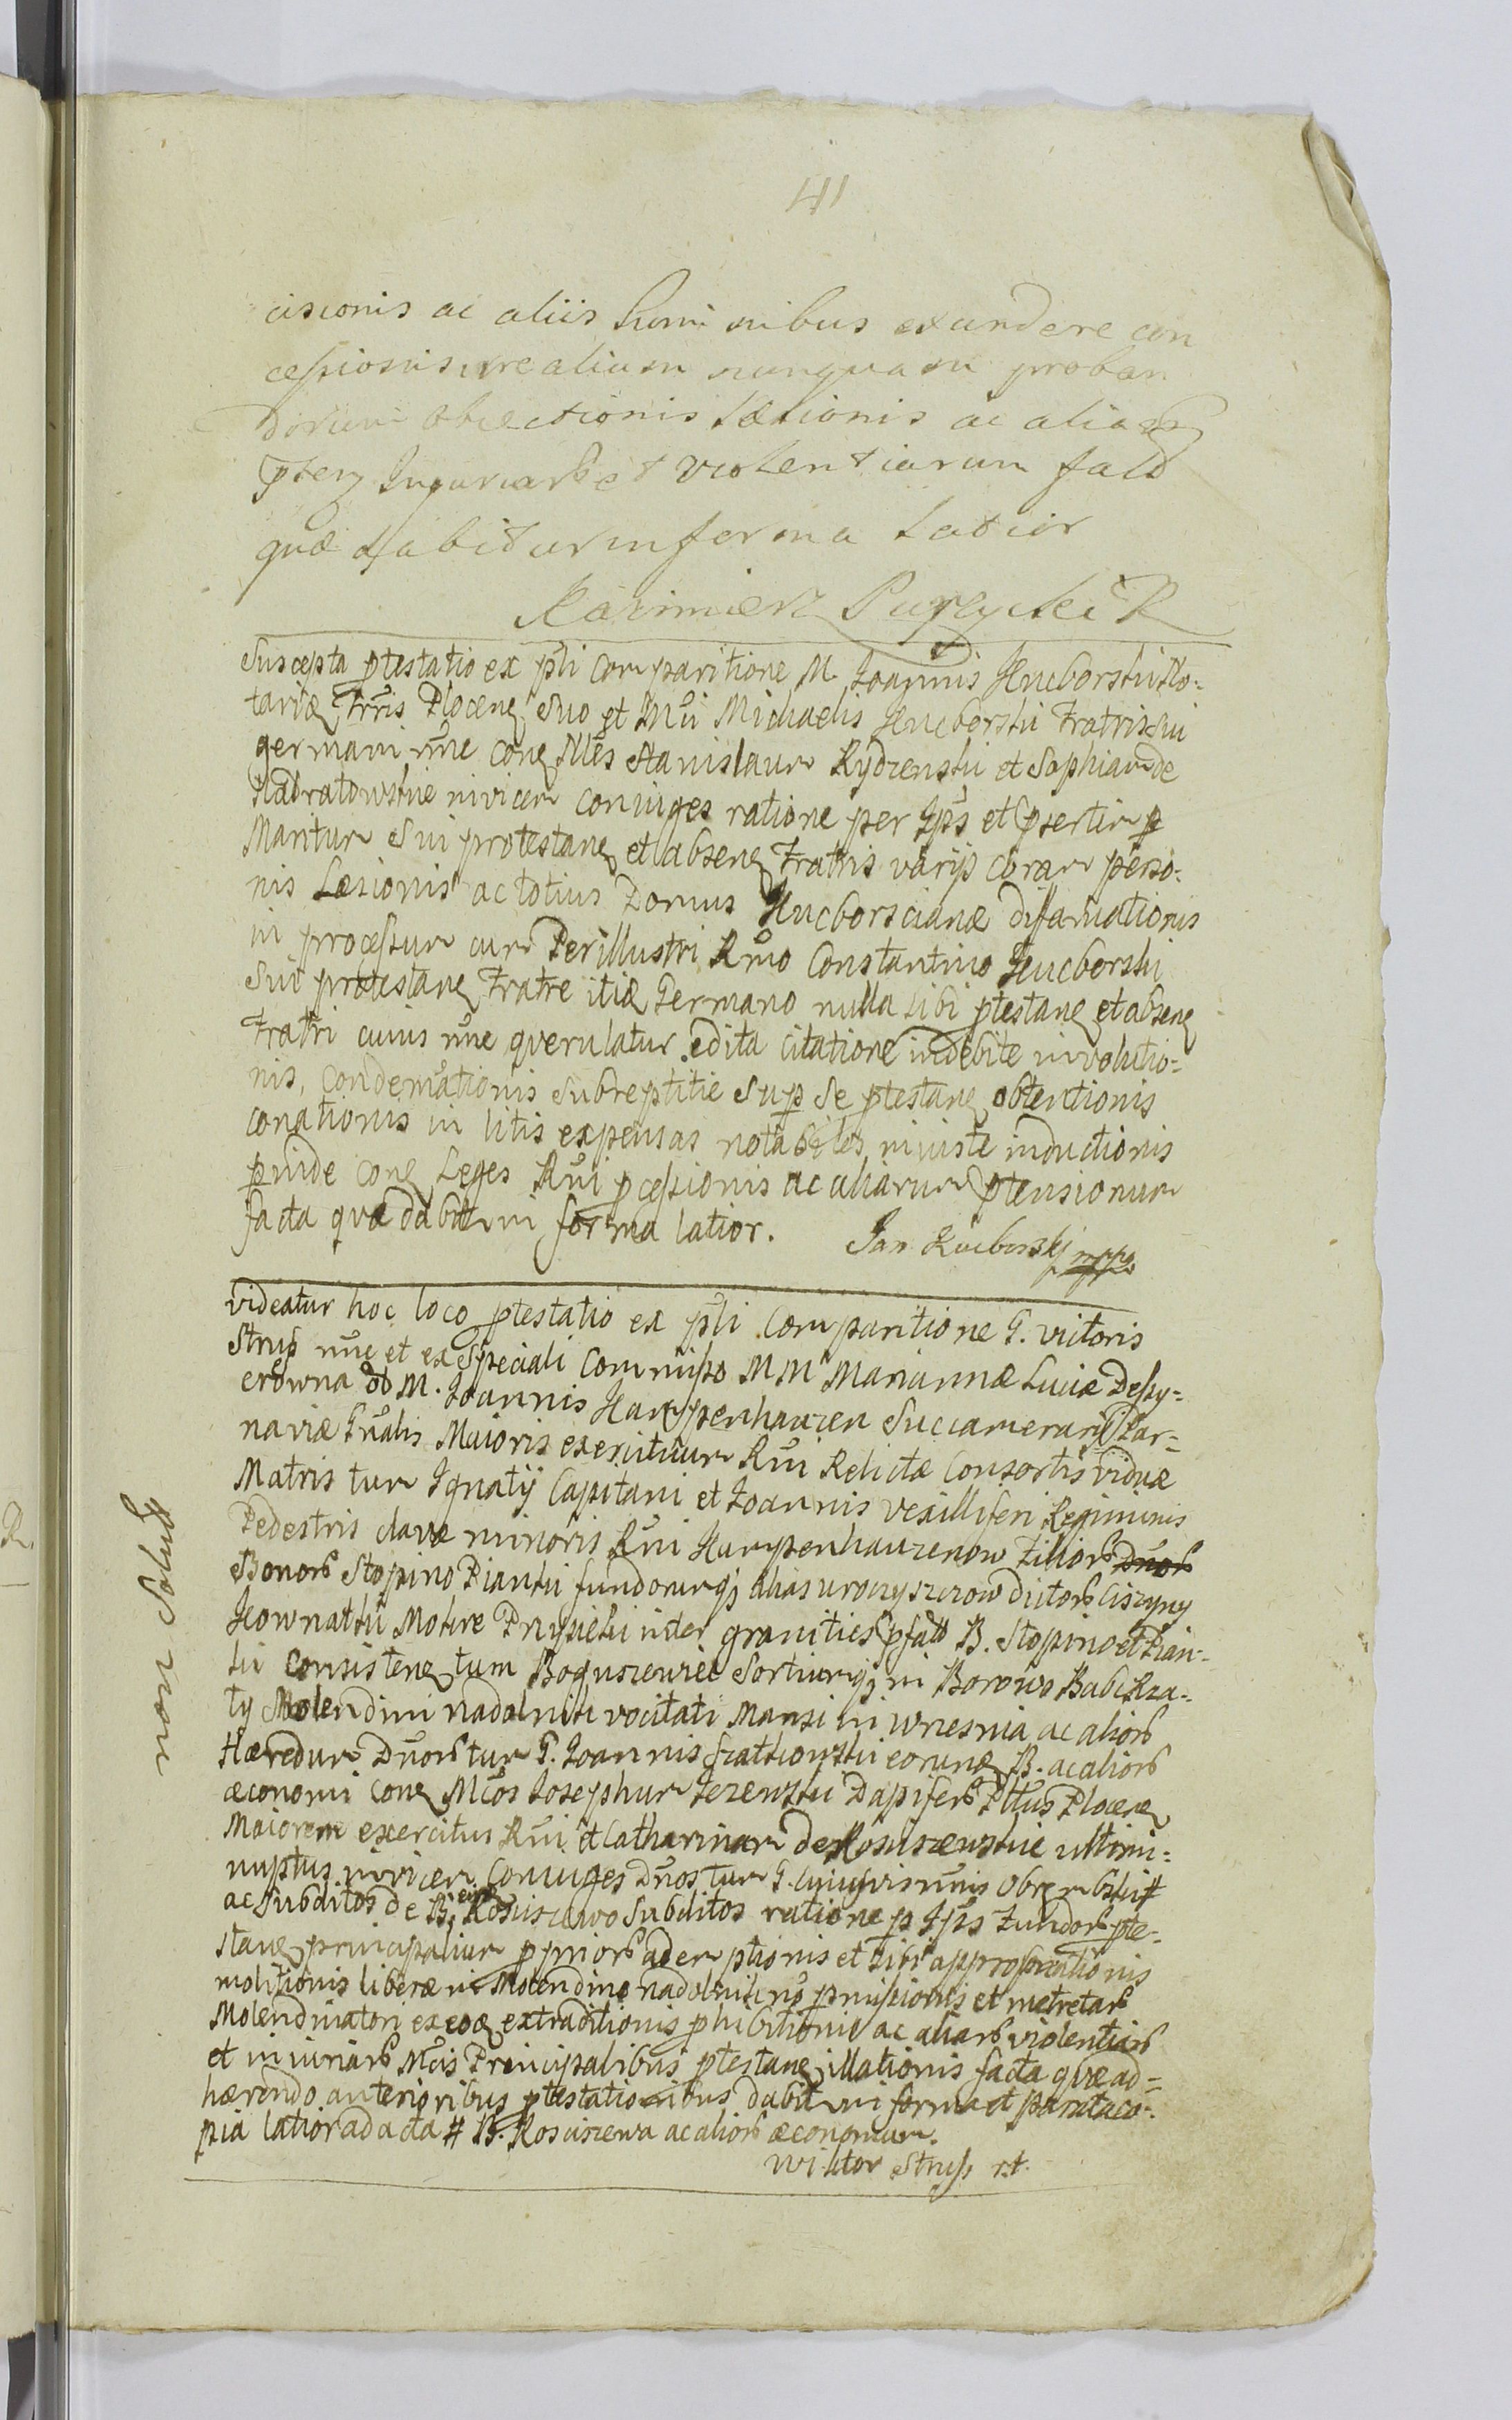 41
cisionis ac aliis hominibus exundere con
cessionis realium nunquam proban
dorum obiectionis Læsionis ac aliar
pten Iniuriar et violentiarum fact
quæ dabitur in forma latior
Kazimierz R
Suscepta ptestatio ex pli comparitione M. Joannis Kucborski No-
tariæ Trris Plocen suo et Mci Michaelis Kucborski Fratris sui
germani nne con Mles Stanislaum Rydzenski et Sophiam de
invicem coniuges ratione per Ips et psertim p
Maritum sui protestan et absen Fratris varijs coram perso-
nis Læsionis ac totius Domus Kucborscianæ diffamationis
in processum cum Perillustri Rmo Constantino Kucborski
Sui protestan Fratre itiæ Germano nulla sibi ptestan et absen
Fratri cuius nne querulatur edita citatione indebite involutio-
nis, condemnationis subreptitie sup se ptestan obtentionis
conationis in litis expensas notabiles iniuste inductionis
pinde con Leges Rni pcessionis ac aliarum ptensionum
facta quæ dabit in forma latior.
Jan Kucborski mppa
videatur hoc loco ptestatio ex pli Comparitione G. victoris
Strus nne et ex speciali commisso M M Mariannæ Luciæ Deszy-
erowna M. Joannis Hampenhauzen Succamerarij Par-
naviæ Gnalis Maioris exercituum Rni Relictæ Consortis viduæ
Matris tum Ignatij Capitani et Joannis vexilliferi Regiminis
Pedestris clavæ minoris Rni Hampenhauzenow Filior Dnor
Bonor Stopino Pianki fundorumq alias uroczyszczow dictor Ciszyny
Kownatki Mokre Przysieki inter granities pfat B. Stopino et Pian-
ki consisten tum Boguszewiec Sortiumq in Borowo Babi Rza-
ty Molendini nadolnik vocitati Mansi in Wrzesnia ac alior
Hæredum Dnor tum G. Joannis Szatkowski eorund B. ac alior
æconomi con Mcos Josephum Jezewski Dapiferu Pttus Plocen
Maiorem exercitus Rni et Catharinam de Kosiszewskie ultimi-
nuptus invicem Coniuges Dnos tum G. cuiusvis nnis Obrembski #
ac subditos de B. eius Kosiszewo subditos ratione p Ips Fundor pte-
stan principalium pprior ademptionis et sibi appropriationis
molitionis liberæ in Molendino nadolnik no pmissionis et metretar
Molendinatori ex eod extraditionis phibitionis ac aliar violentiar
et iniuriar Mcis Principalibus ptestan illationis facta quæ ad-
hærendo anterioribus ptestationibus dabit in forma et parata co-
pia latior ad acta # B. Kosiszewa ac alior æconomum.
Wiktor Strus r.t.
non Solut
R.